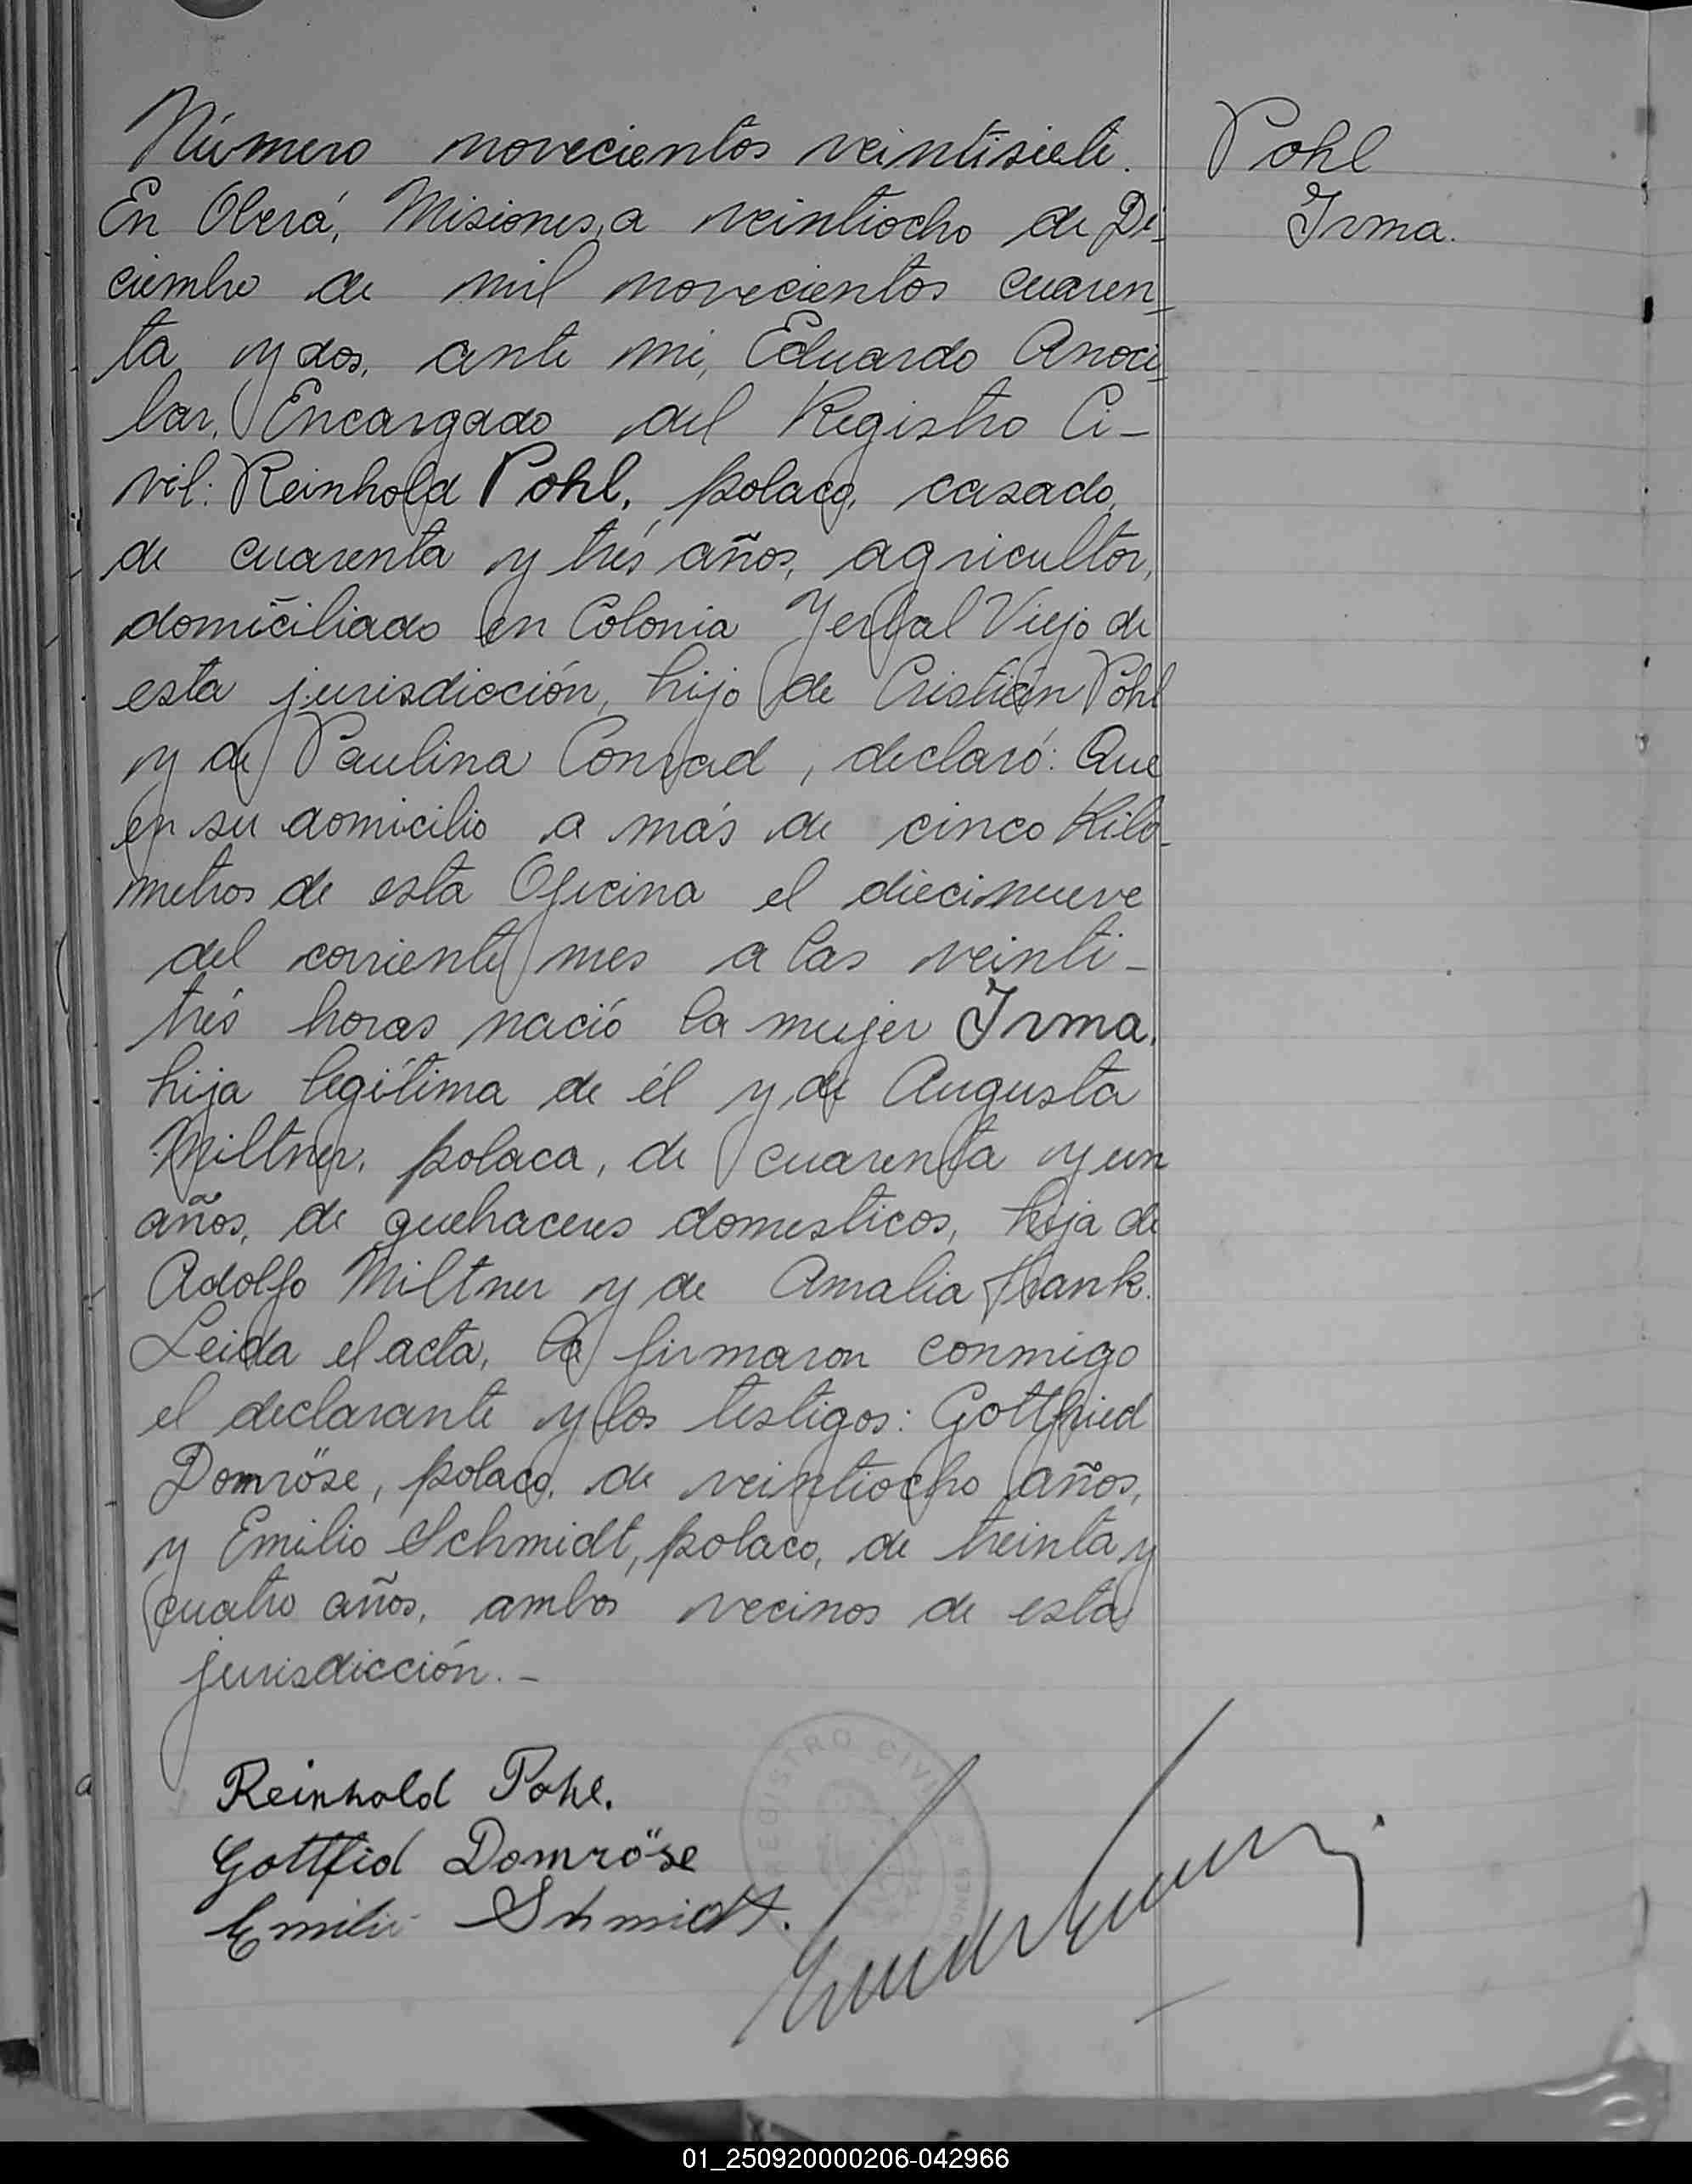 Número novecientos veintisiete.
Pohl
Irma.
En Oberá, Misiones, a veintiocho de Di-
ciembre de mil novecientos cuaren-
ta y dos, ante mi, Eduardo Anoci-
bar, Encargado del Registro Ci-
vil: Reinhold Pohl, polaco, casado,
de cuarenta y trés años, agricultor,
domiciliado en Colonia Yerbal Viejo de
esta jurisdicción, hijo de Cristián Pohl
y de Paulina Conrad, declaró: Que
en su domicilio a más de cinco Kiló-
metros de esta Oficina el diecinueve
del corriente mes a las veinti-
trés horas nació la mujer Irma,
hija legítima de él y de Augusta
Miltner, polaca, de cuarenta y un
años, de quehaceres domesticos, hija de
Adolfo Miltner y de Amalia Frank.
Leida el acta, la firmaron conmigo
el declarante y los testigos: Gottfried
Domröse, polaco, de veintiocho años,
y Emilio Schmidt, polaco, de treinta y
cuatro años, ambos vecinos de esta
jurisdicción.-
Reinhold Pohl.
Gottfid Domröse
Emilio Schmidt.
REGISTRO CIVIL
01_250920000206-042966